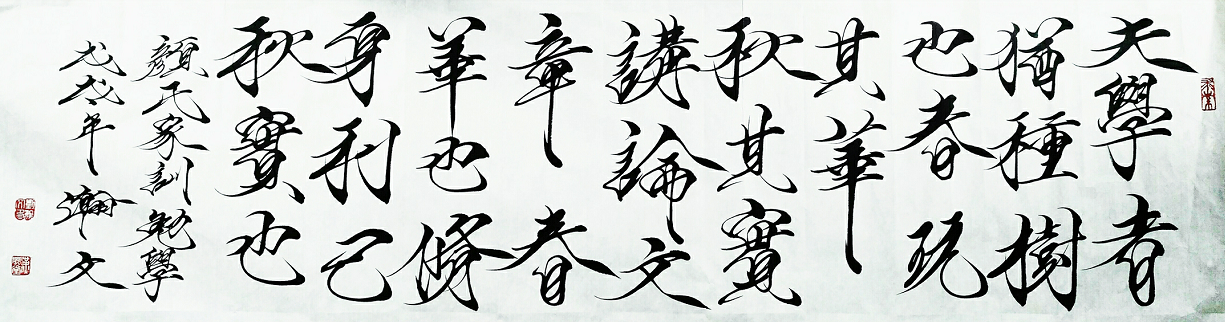 夫學者
猶種樹
也春玩
其華
秋其實
講論文
章春
華也脩
身利己
秋實也
顏氏家訓勉學
戊戌年瀚文